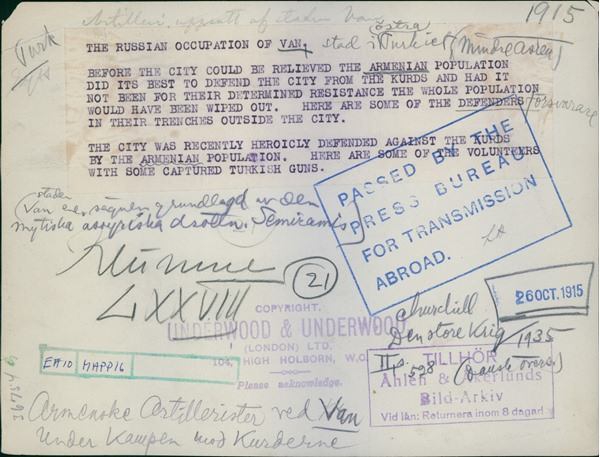 1915
Turk
Östra
THE RUSSIAN OCCUPATION OF VAN, stad i Turkiet (Mindre Asien)
BEFORE THE CITY COULD BE RELIEVED THE ARMENIAN POPULATION
DID ITS BEST TO DEFEND THE CITY FROM THE KURDS AND HAD IT
NOT BEEN FOR THEIR DETERMINED RESISTANCE THE WHOLE POPULATION
WOULD HAVE BEEN WIPED OUT. HERE ARE SOME OF THE DEFENDERS försvarare
IN THEIR TRENCHES OUTSIDE THE CITY.
THE CITY WAS RECENTLY HEROICLY DEFENDED AGAINST THE KURDS
BY THE ARMENIAN POPULATION. HERE ARE SOME OF THE VOLUNTEERS
WITH SOME CAPTURED TURKISH GUNS.
PASSED BY THE
PRESS BUREAU
FOR TRANSMISSION
ABROAD.
staden
Van enl. sägnen grundlagd av den
mytiska assyriska drottn. Semiramis
LXXVIII
21
26 OCT. 1915
COPYRIGHT.
UNDERWOOD & UNDERWOOD
(LONDON) LTD.
104, HIGH HOLBORN, W.C.
Please acknowledge.
Churchill
Den store Krig 1935
II s. 598 (Dansk övers.)
TILLHÖR
Åhlén & Åkerlunds
Bild-Arkiv
Vid lån: Returnera inom 8 dagar!
EA10 HAPP16
Armenske Artillerister ved Van
under Kampen mod Kurderne